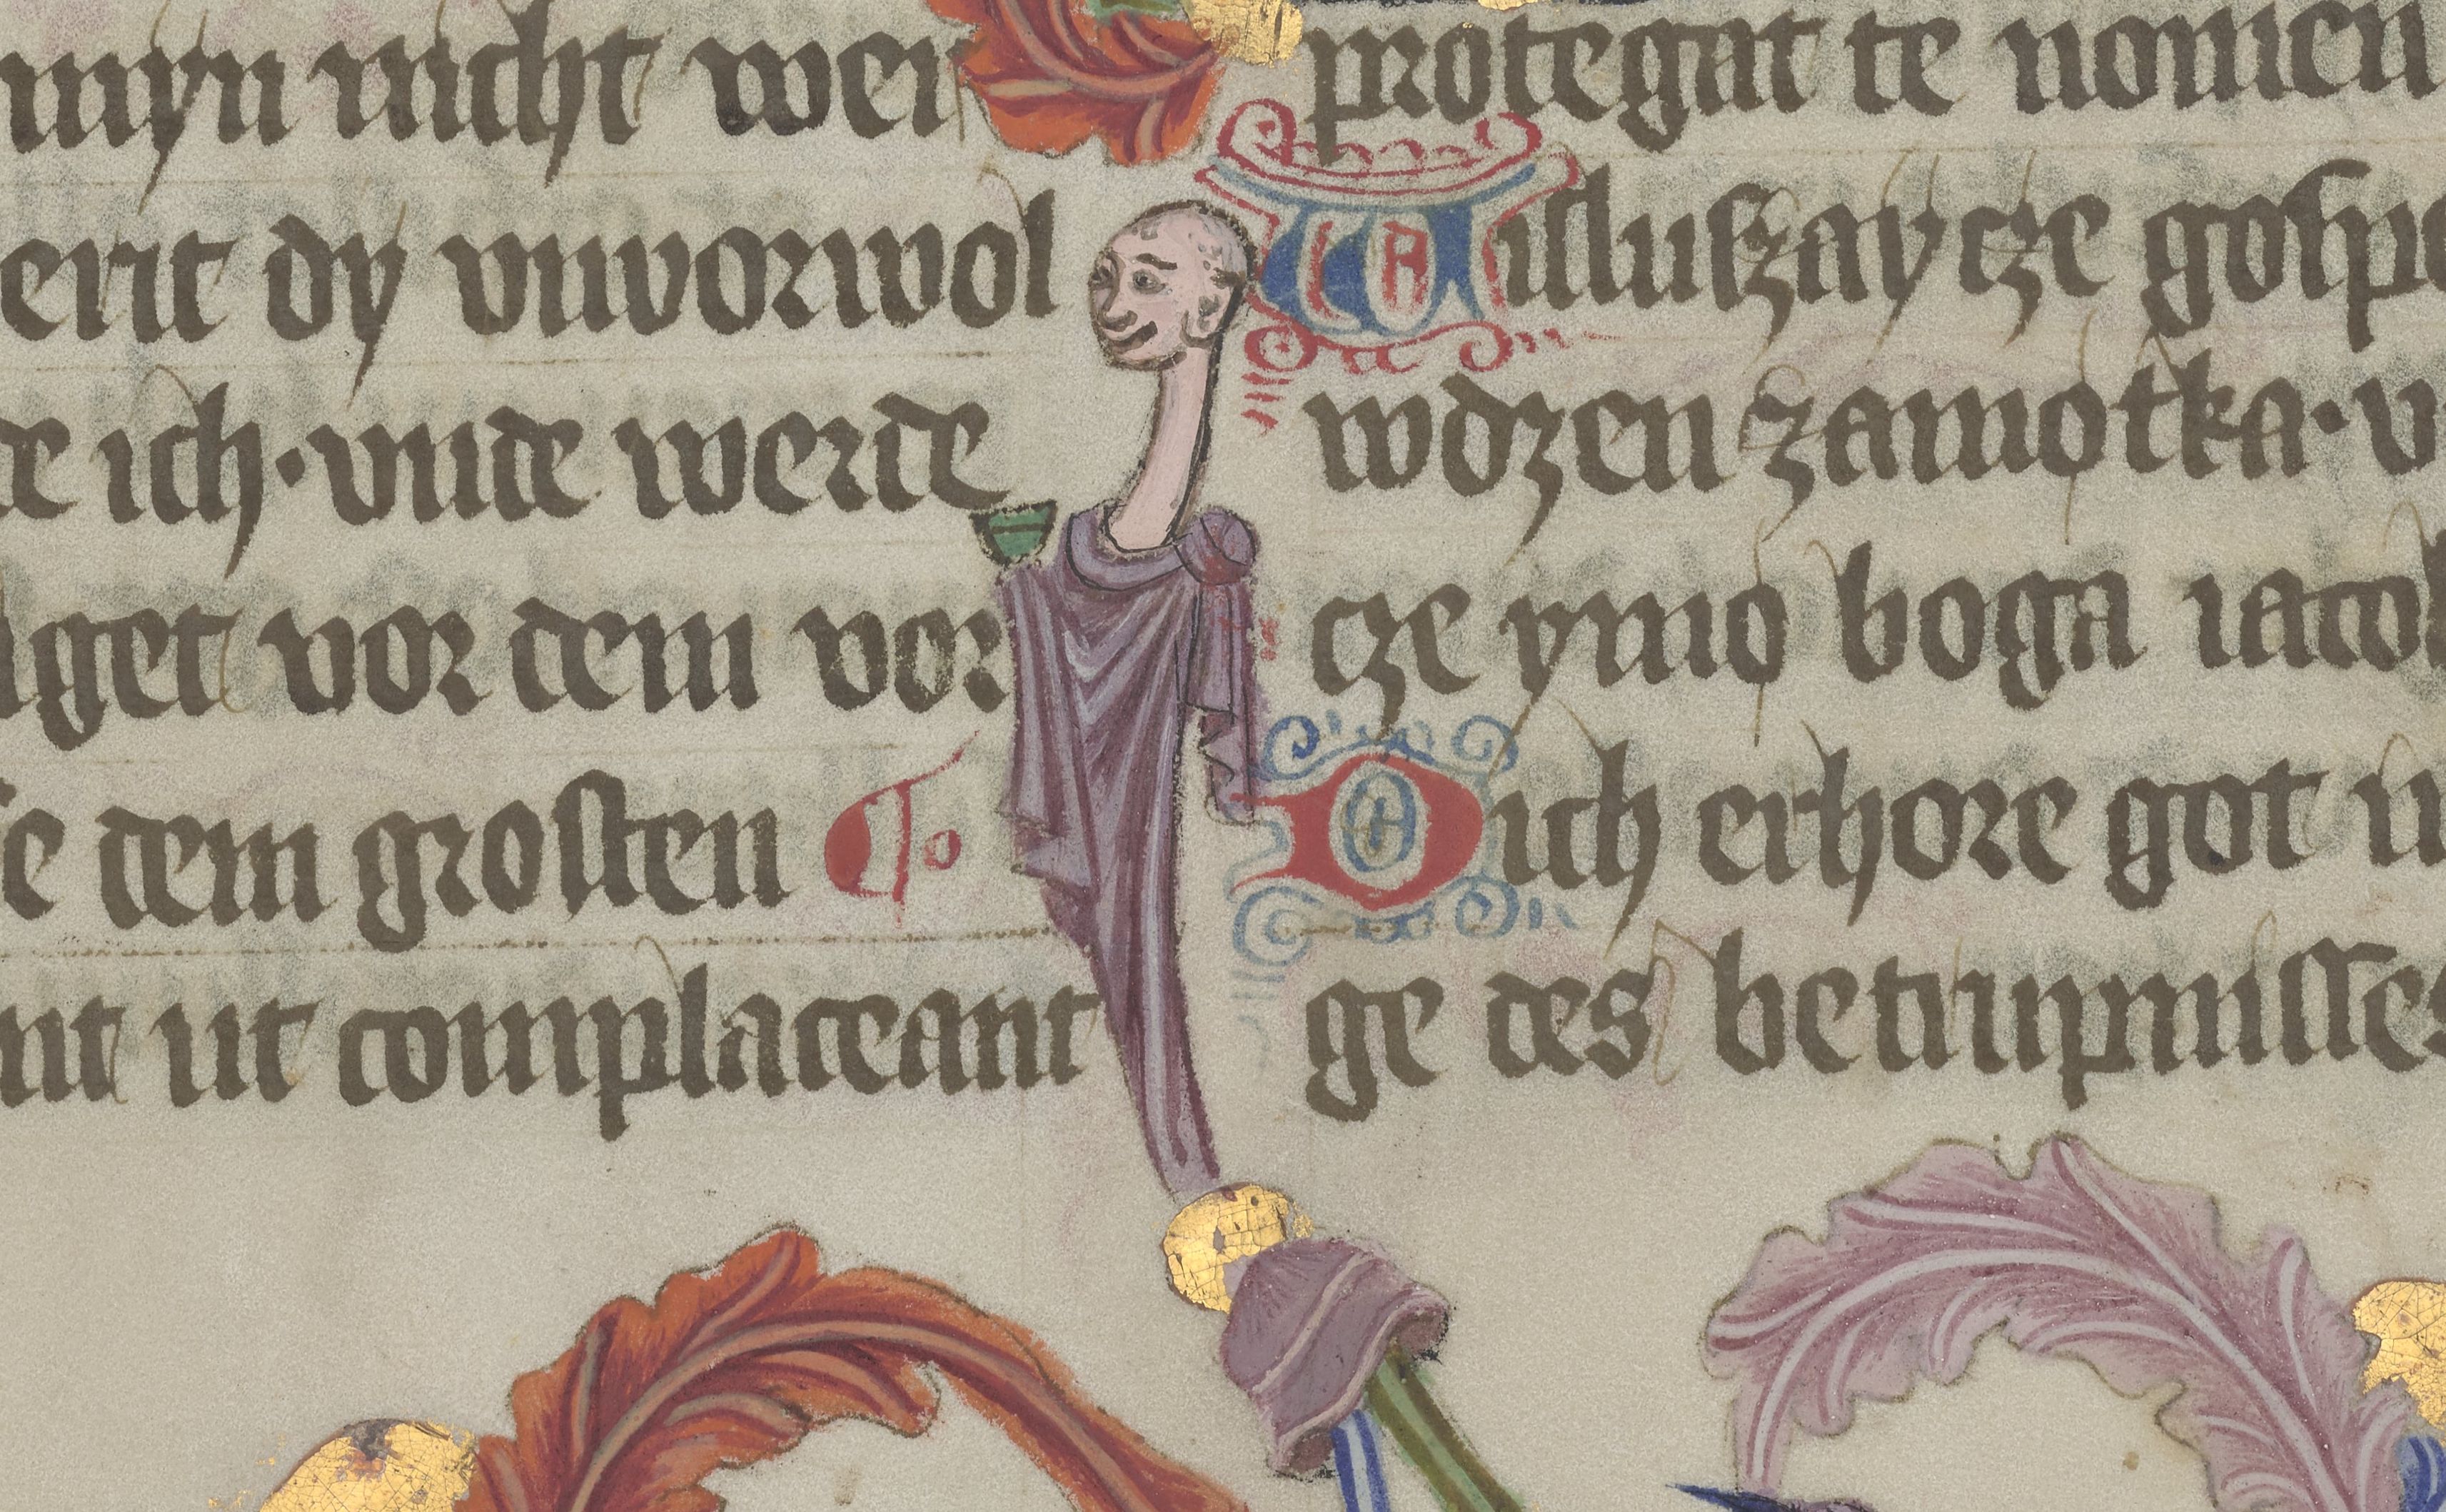 myn nicht wer
erit dy vnvorwol
de ich · vnde werde
get vor dem vor
se dem grosten
nt ut complaceant
protegat te nomen
Usluszay cze gosp
wdzen zamøtka · w
cze ymø boga iacob
Dich erhore got in
ge des betrupnisses